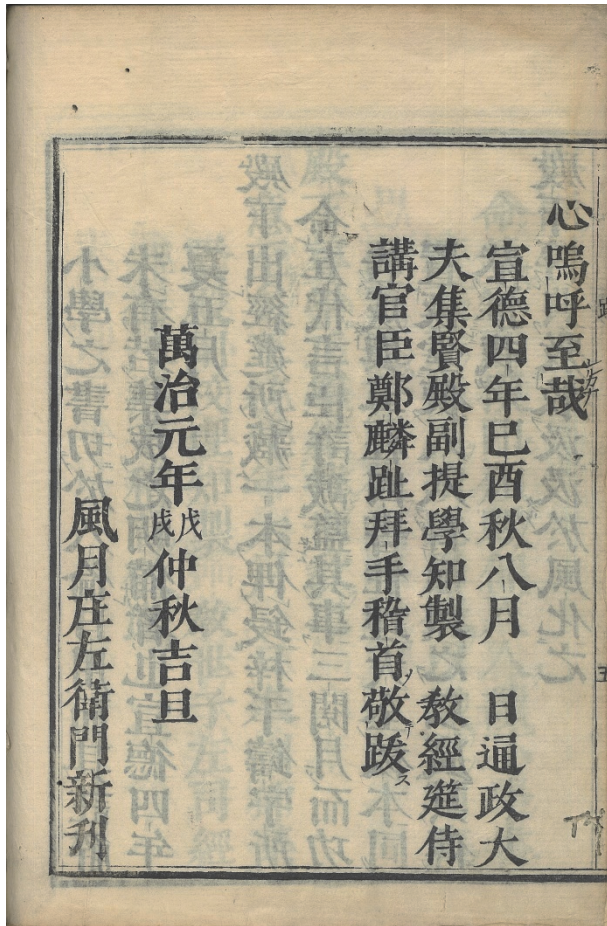 心嗚呼至哉
宣德四年已酉秋八月　日通政大
夫集賢殿副提學知製　教經筵侍
講官臣鄭麟趾拜手稽首敬跋ス
萬治元年戊戌仲秋吉旦
風月庄左衛門新刊